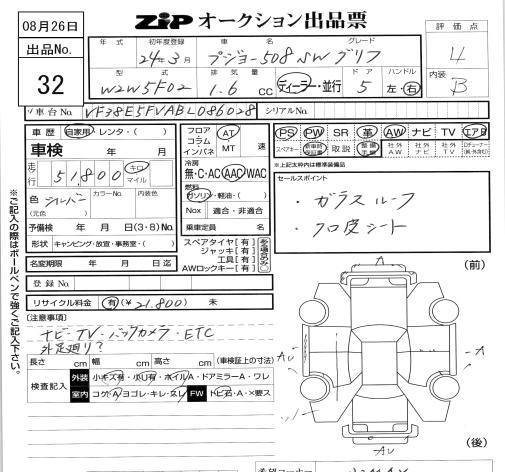 08月26日
出品No.
32
ZIP オークション出品票
年式 初年度登録 車名 グレード
24年3月 プジョー508SW グリフ
型式 排気量 ドア ハンドル
W2W5F02 1.6cc ディーラー・並行 5 左・右
評価点
4
内装
B
車台No. VF38E5FVABL086028 シリアルNo.
車歴 自家用・レンタ・( )
車検 年 月 日
走行 51,800 キロ マイル
色 シルバー カラーNo. 内装色
(元色)
予備検 年 月 日(3・8)No.
形状 キャンピング・放宣・事務室・( )
名変期限 年 月 日迄
登録No.
リサイクル料金 有(¥21,800) 未
フロア
コラム
インパネ
AT
MT 速
冷房
無・C・AC AAC WAC
燃料
ガソリン・軽油・( )
Nox 適合・非適合
乗車定員 名
スペアタイヤ[有]
ジャッキ[有]
工具[有]
AWロックキー[有]
PS PW SR 革 AW ナビ TV エアB
スペアキー 取説 社外AW 社外ナビ 社外TV
※上記太枠内は標準装備品
セールスポイント
・ガラスルーフ
・クロ皮シート
[注意事項]
ナビ・TV・バックカメラ・ETC
外足廻り?
長さ cm 幅 cm 高さ cm (車検証上の寸法)
検査記入 外装 小キズ有・小U有・ホイルA・ドアミラーA・ワレ
室内 コゲ・A・ヨゴレ・キレ・スレ FW トビ石・A・×要ス
※ご記入の際はボールペンで強くご記入下さい。
(前)
AU
A
AU
(後)
希望コーナー